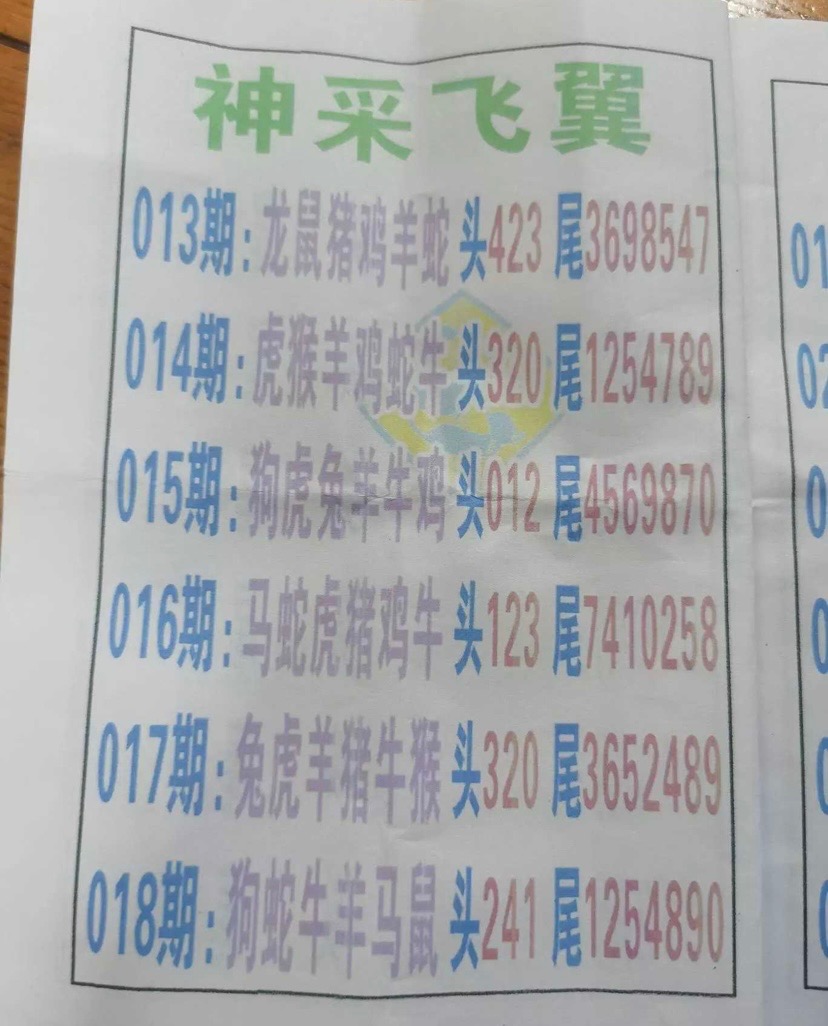 神采飞翼
013期:龙鼠猪鸡羊蛇头423尾3698547
014期:虎猴羊鸡蛇牛头320尾1254789
015期:狗虎兔羊牛鸡头012尾4569870
016期:马蛇虎猪鸡牛头123尾7410258
017期:兔虎羊猪牛猴头320尾3652489
018期:狗蛇牛羊马鼠头241尾1254890
01
02
0
0
0
0